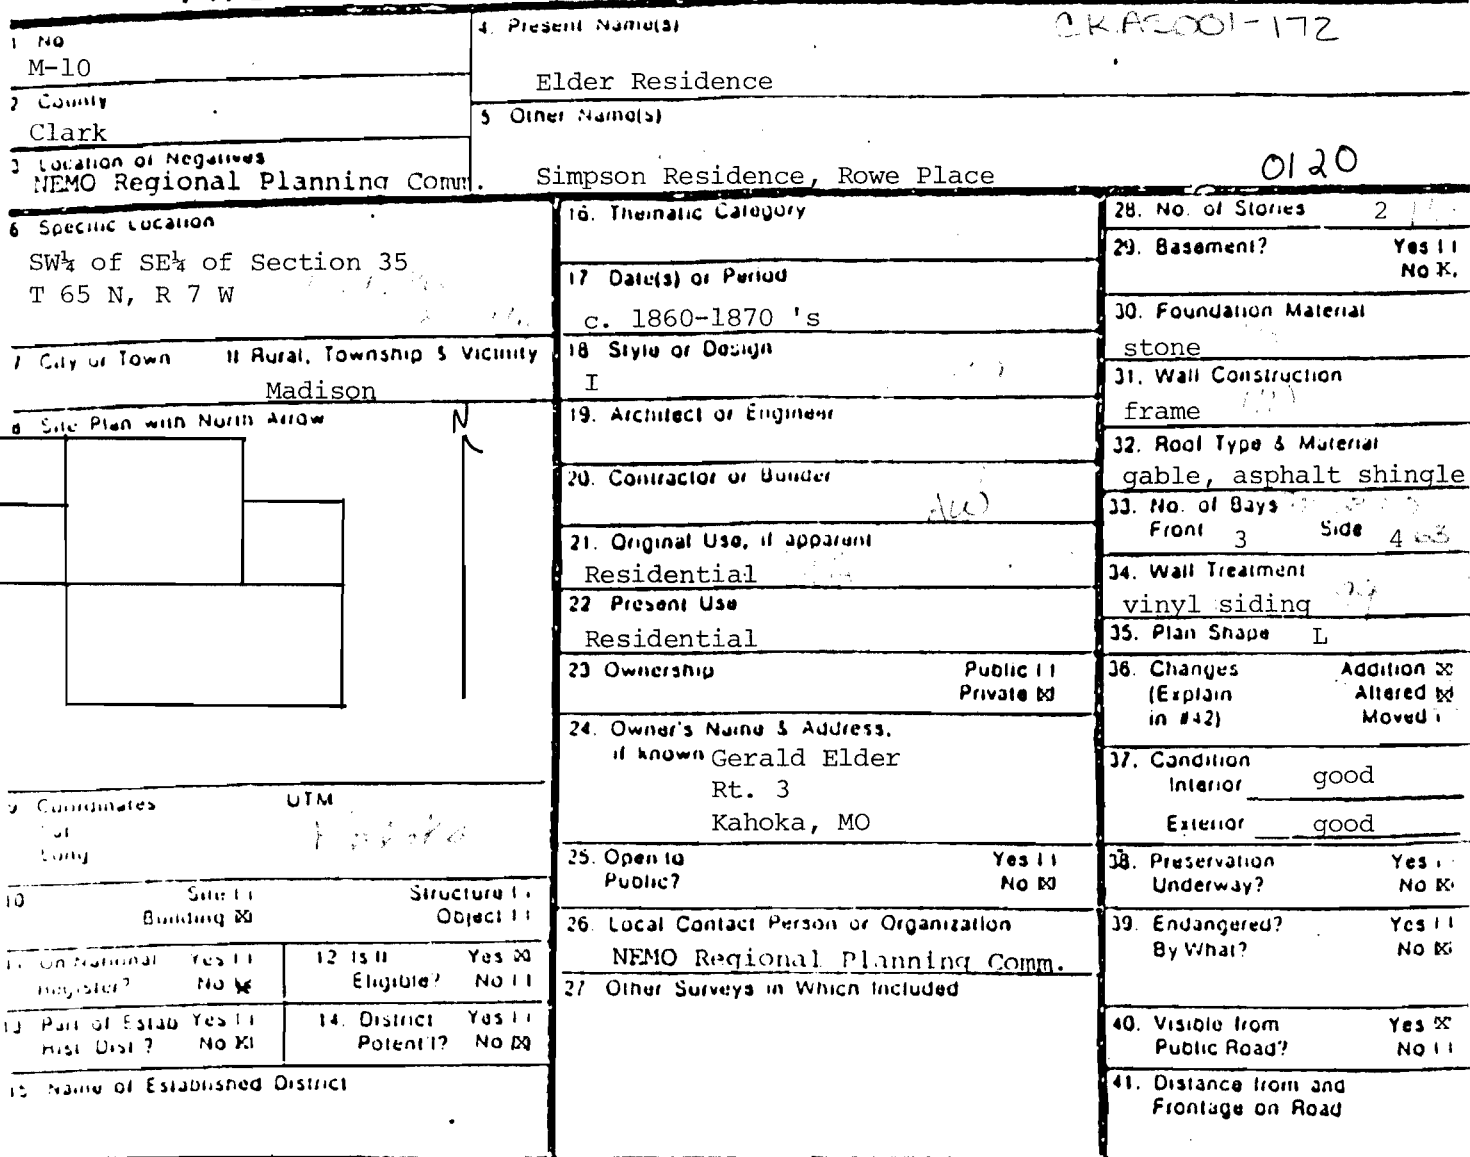 1 No
M-10
2 County
Clark
3 Location of Negatives
NEMO Regional Planning Comm.
4. Present Name(s)
CKAS001-172
Elder Residence
5 Other Name(s)
Simpson Residence, Rowe Place
0120
6 Specific Location
SW¼ of SE¼ of Section 35
T 65 N, R 7 W
7 City or Town If Rural, Township & Vicinity
Madison
8 Site Plan with North Arrow
N
9 Coordinates UTM
Lat
Long
Kahoka
10 Site [ ] Structure [ ]
Building [X] Object [ ]
11 On National Yes [ ]
Register? No [X]
12 Is It Yes [X]
Eligible? No [ ]
13 Part of Estab Yes [ ]
Hist Dist? No [X]
14. District Yes [ ]
Potent'l? No [X]
15 Name of Established District
16. Thematic Category
17 Date(s) or Period
c. 1860-1870 's
18 Style or Design
I
19. Architect or Engineer
20. Contractor or Builder
21. Original Use, if apparent
Residential
22 Present Use
Residential
23 Ownership Public [ ]
Private [X]
24. Owner's Name & Address,
if known Gerald Elder
Rt. 3
Kahoka, MO
25. Open to Yes [ ]
Public? No [X]
26. Local Contact Person or Organization
NEMO Regional Planning Comm.
27 Other Surveys in Which Included
28. No. of Stories 2
29. Basement? Yes [ ]
No X.
30. Foundation Material
stone
31. Wall Construction
frame
32. Roof Type & Material
gable, asphalt shingle
33. No. of Bays
Front 3 Side 4
34. Wall Treatment
vinyl siding
35. Plan Shape L
36. Changes Addition [X]
(Explain Altered [X]
in #42) Moved [ ]
37. Condition
Interior good
Exterior good
38. Preservation Yes [ ]
Underway? No [X]
39. Endangered? Yes [ ]
By What? No [X]
40. Visible from Yes [X]
Public Road? No [ ]
41. Distance from and
Frontage on Road